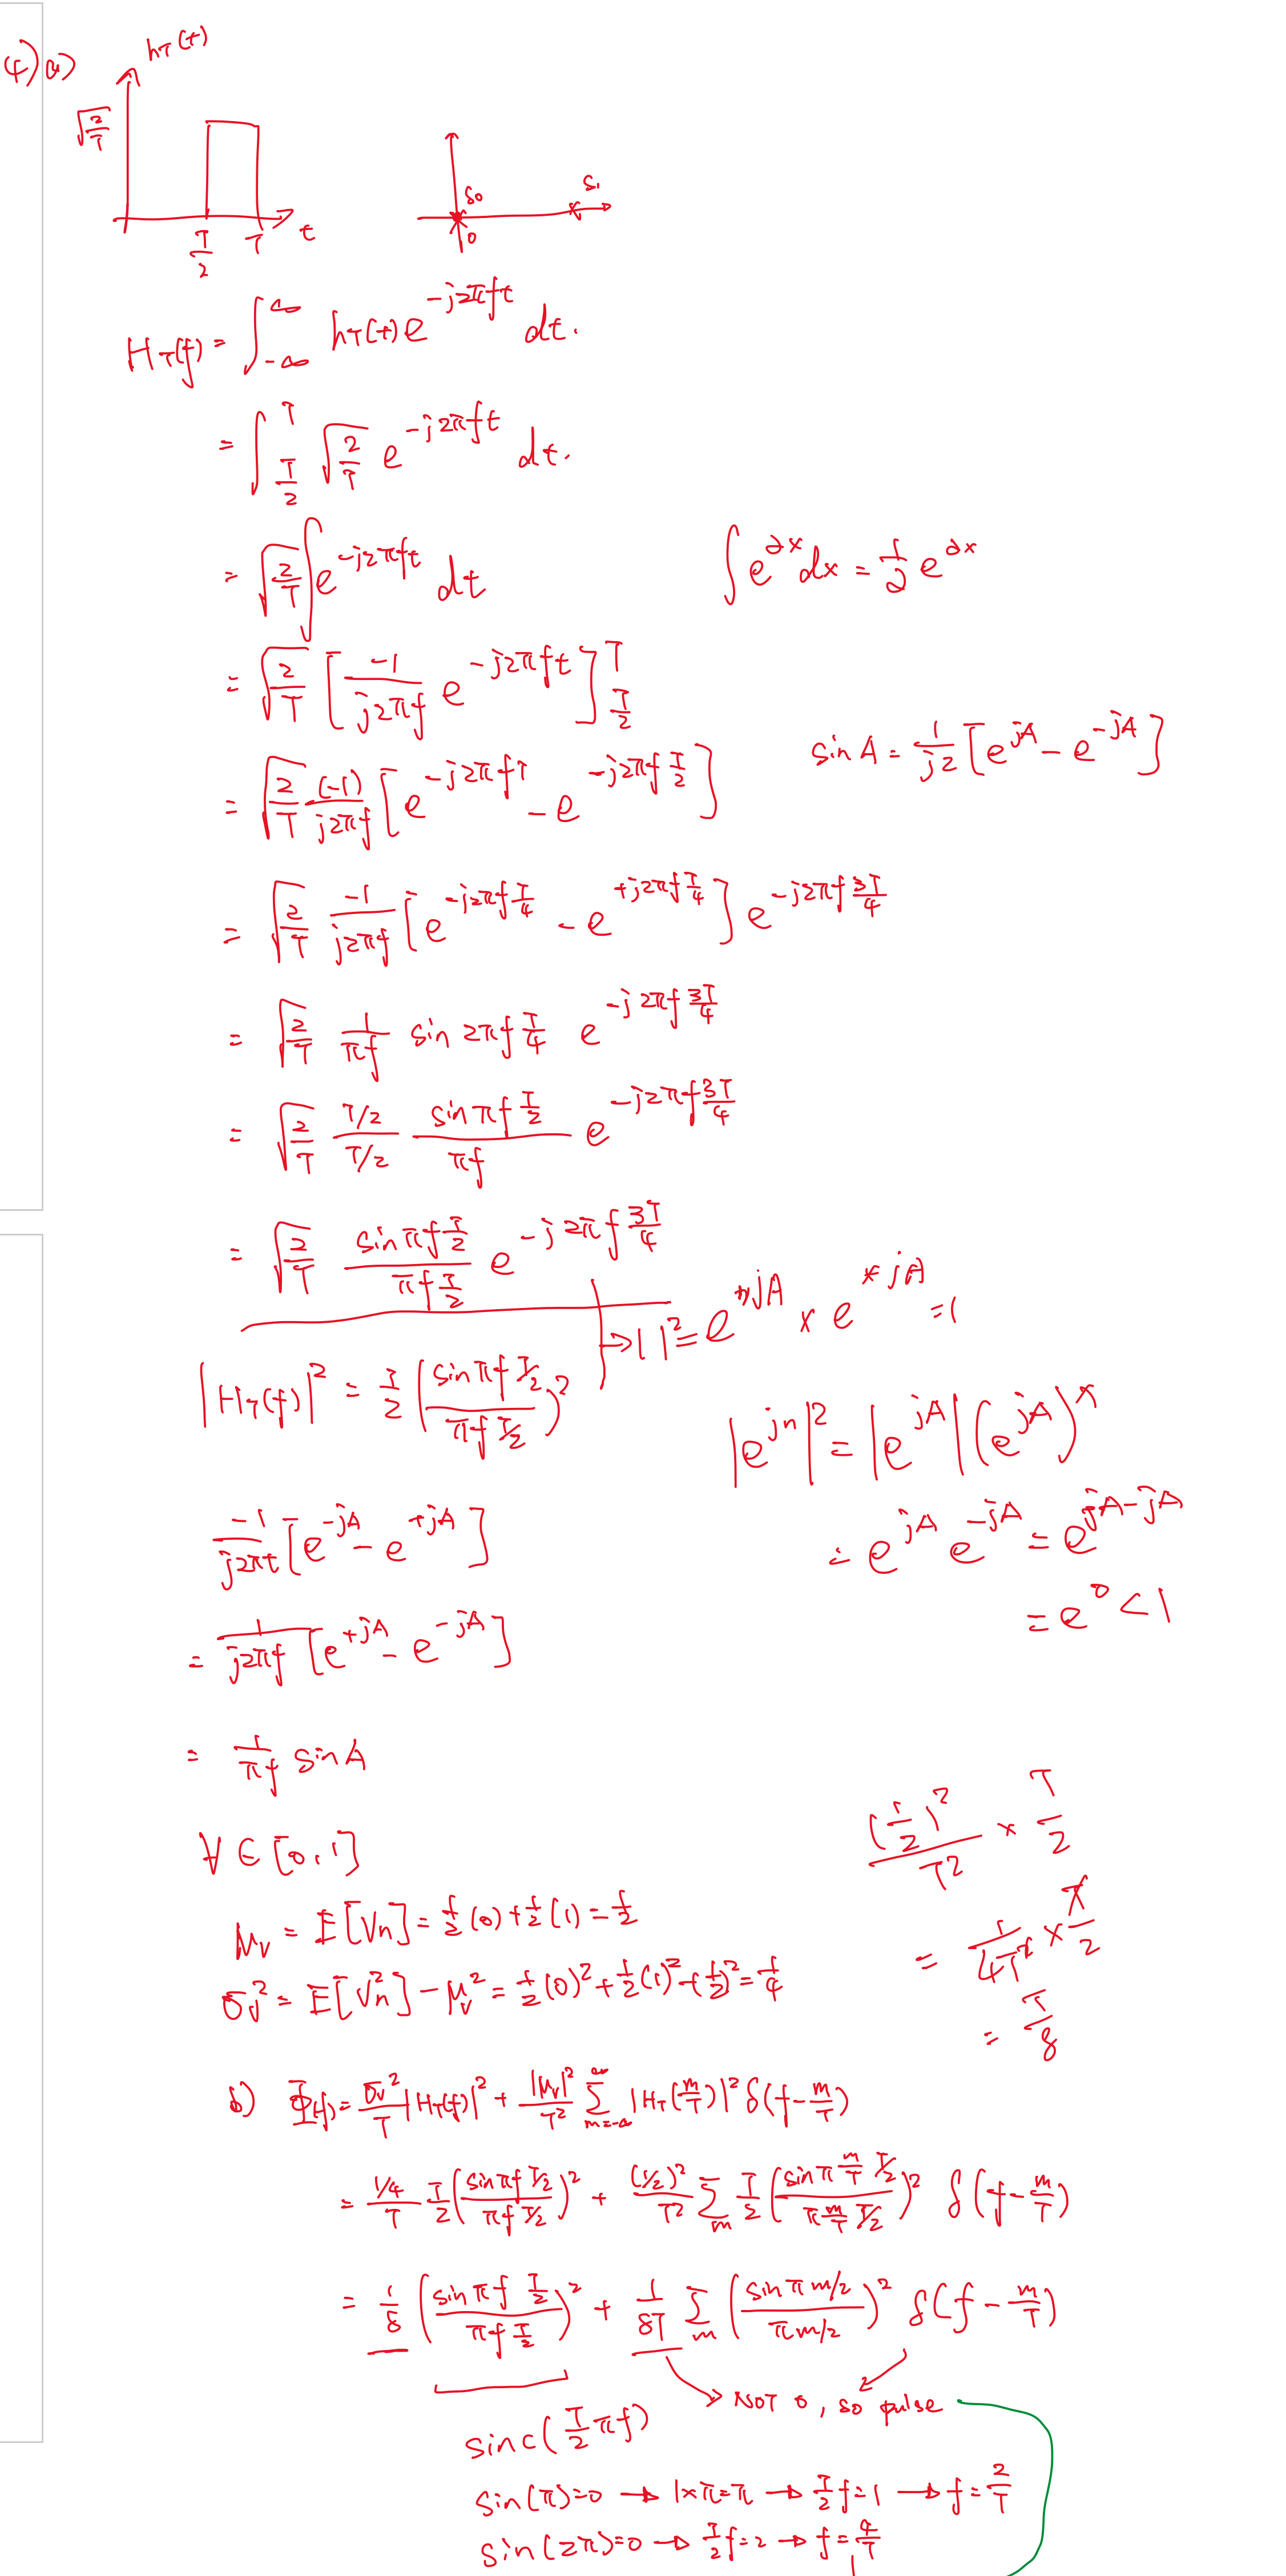 4) a)
h_T(t)
√(2/T)
T/2 T t
S_0 S_1
0
H_T(f) = ∫_{-∞}^{∞} h_T(t) e^{-j2πft} dt.
= ∫_{T/2}^{T} √(2/T) e^{-j2πft} dt.
= √(2/T) ∫ e^{-j2πft} dt
∫ e^{ax} dx = 1/a e^{ax}
= √(2/T) [ -1/(j2πf) e^{-j2πft} ]_{T/2}^{T}
sin A = 1/(j2) [e^{jA} - e^{-jA}]
= √(2/T) (-1)/(j2πf) [ e^{-j2πfT} - e^{-j2πf T/2} ]
= √(2/T) -1/(j2πf) [ e^{-j2πf T/4} - e^{+j2πf T/4} ] e^{-j2πf 3T/4}
= √(2/T) 1/(πf) sin 2πf T/4 e^{-j2πf 3T/4}
= √(2/T) (T/2)/(T/2) (sin πf T/2)/(πf) e^{-j2πf 3T/4}
= √(2/T) (sin πf T/2)/(πf T/2) e^{-j2πf 3T/4}
→ | |² = e^{jA} × e^{*jA} = 1
|H_T(f)|² = T/2 ( (sin πf T/2)/(πf T/2) )²
|e^{jn}|² = |e^{jA}| (e^{jA})^*
= e^{jA} e^{-jA} = e^{jA-jA}
= e^0 < 1
-1/(j2πt) [e^{-jA} - e^{+jA}]
= 1/(j2πf) [e^{+jA} - e^{-jA}]
= 1/(πf) sin A
V ∈ [0, 1]
μ_V = E[V_n] = 1/2 (0) + 1/2 (1) = 1/2
σ_V² = E[V_n²] - μ_V² = 1/2 (0)² + 1/2 (1)² - (1/2)² = 1/4
(1/2)²/T² × T/2
= 1/(4T²) × T/2
= T/8
b) Φ(f) = σ_V²/T |H_T(f)|² + |μ_V|²/T² Σ_{m=-∞}^{∞} |H_T(m/T)|² δ(f - m/T)
= (1/4)/T T/2 ( (sin πf T/2)/(πf T/2) )² + (1/2)²/T² Σ_m T/2 ( (sin π m/T T/2)/(π m/T T/2) )² δ(f - m/T)
= 1/8 ( (sin πf T/2)/(πf T/2) )² + 1/(8T) Σ_m ( (sin πm/2)/(πm/2) )² δ(f - m/T)
→ NOT 0, so pulse
sinc(T/2 πf)
sin(π)=0 → 1×π=π → T/2 f=1 → f = 2/T
sin(2π)=0 → T/2 f=2 → f = 4/T